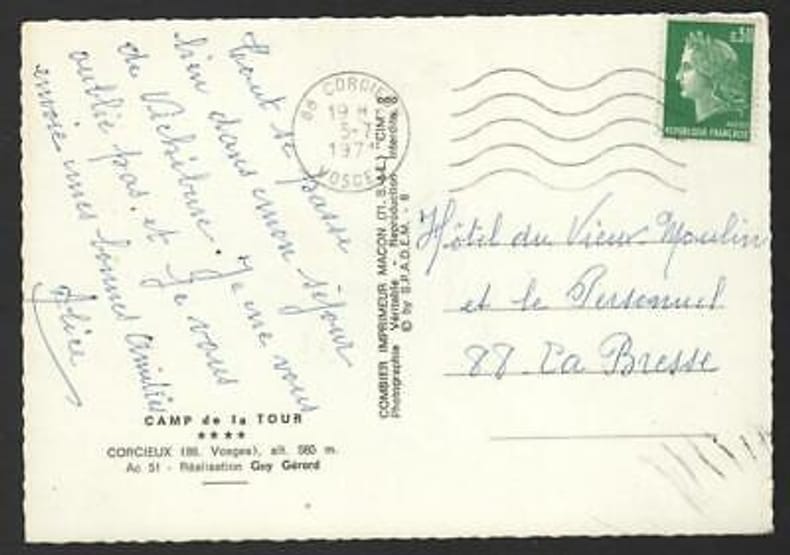 Tout se passe
bien dans mon séjour
de Je ne vous
oublie pas. et Je vous
envoie mes bonnes amitiés
Alice
CAMP de la TOUR
★★★★
CORCIEUX (88. Vosges), alt. 580 m.
Ac 51 - Réalisation Guy Gérard
COMBIER IMPRIMEUR MACON (71. S.-&-L.) "CIM"
Photographie Véritable - Reproduction Interdite
© by S.P.A.D.E.M. - 8
88 CORCIEUX
19 H
5-7
VOSGES
0,30
REPUBLIQUE FRANÇAISE
Hôtel du Vieux Moulin
et le Personnel
88 La Bresse